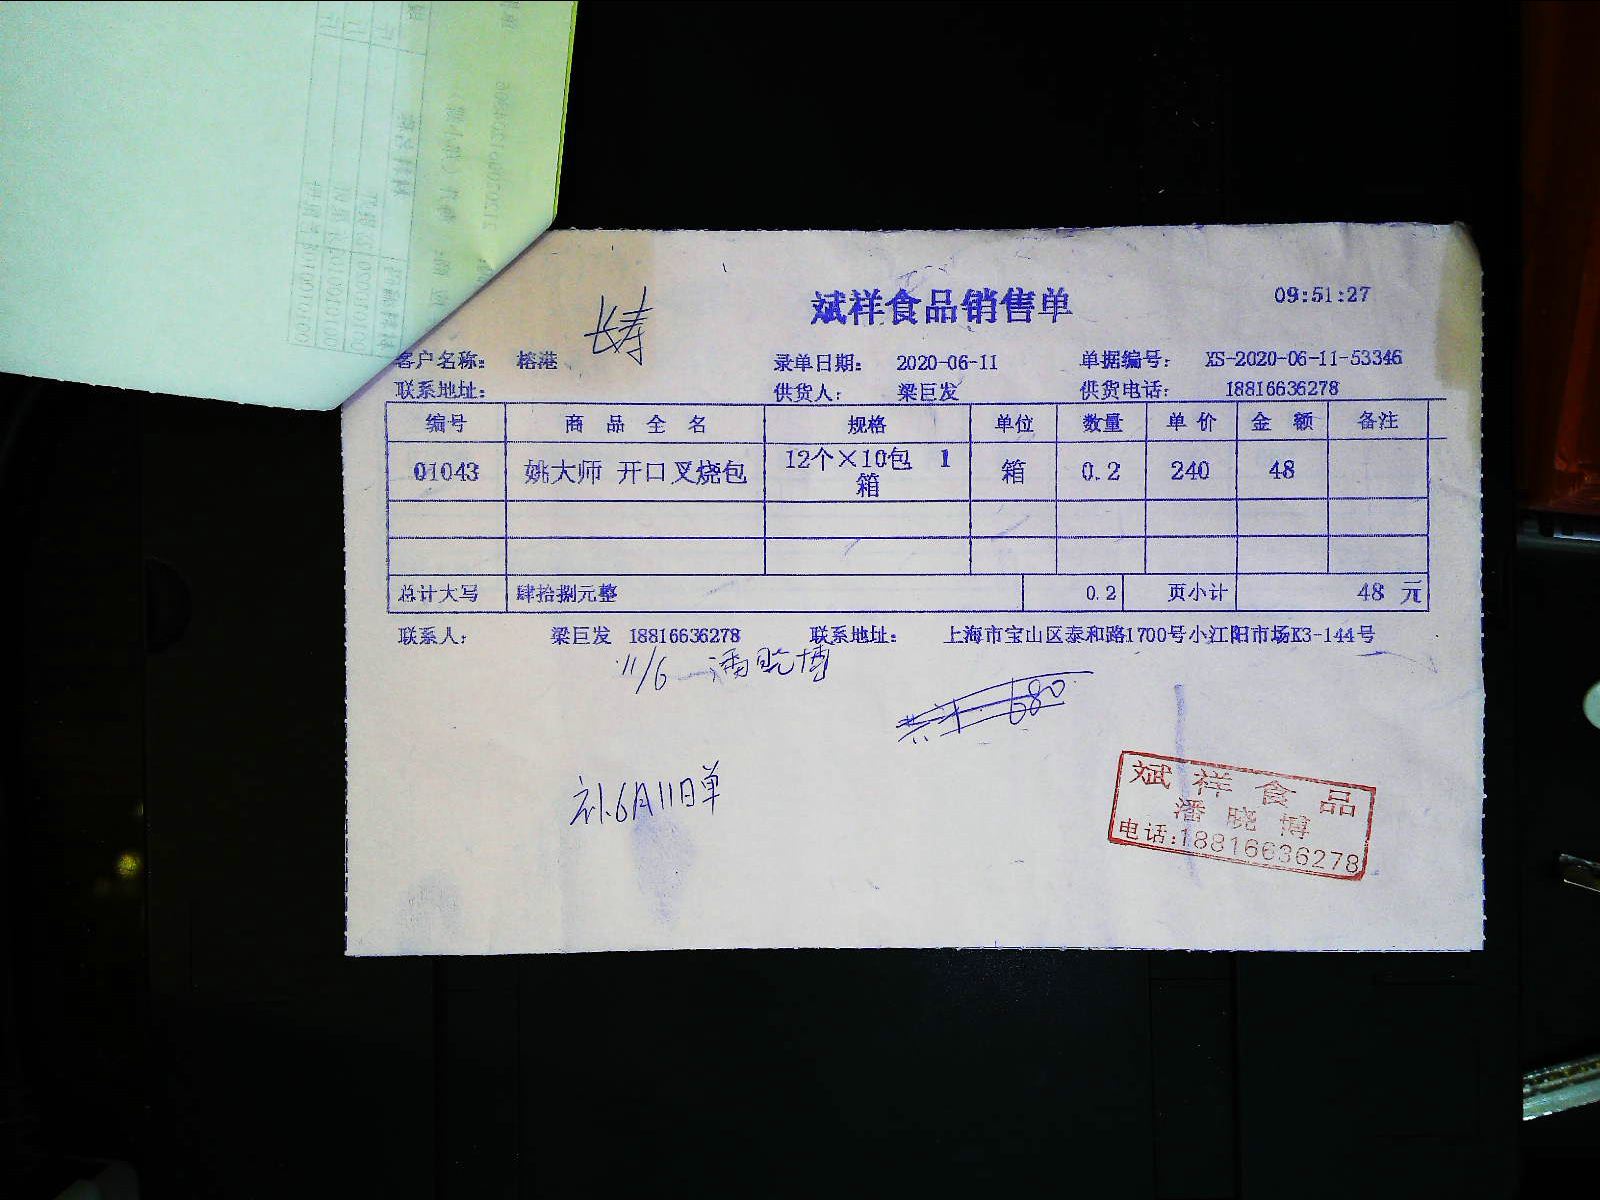 长寿
斌祥食品销售单
09:51:27
客户名称: 榕港 录单日期: 2020-06-11 单据编号: XS-2020-06-11-53346
联系地址: 供货人: 梁巨发 供货电话: 18816636278
编号 商品全名 规格 单位 数量 单价 金额 备注
01043 姚大师 开口叉烧包 12个×10包 1箱 箱 0.2 240 48
总计大写 肆拾捌元整 0.2 页小计 48 元
联系人: 梁巨发 18816636278 联系地址: 上海市宝山区泰和路1700号小江阳市场K3-144号
11/6 潘晓博
共计 680
补6月11日单
斌祥食品
潘晓博
电话:18816636278